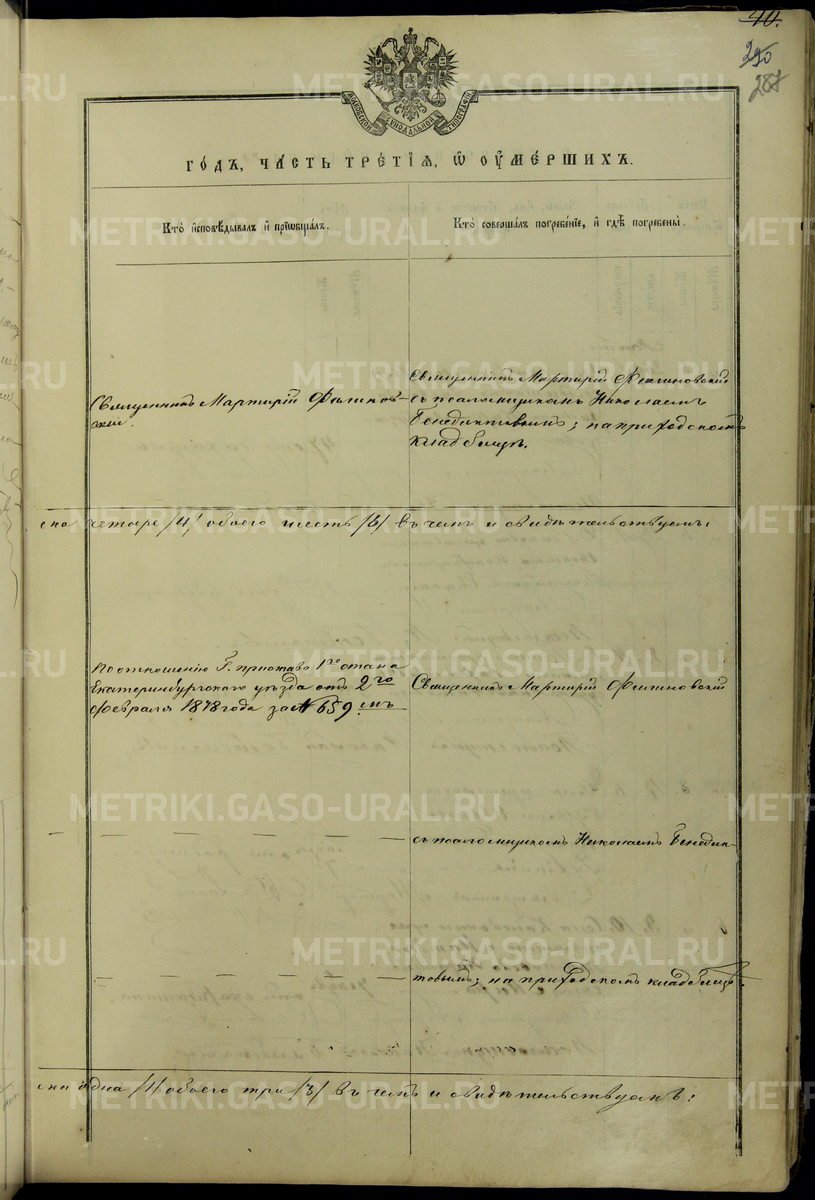 40.
290
287
МОСКОВСКОЙ СѴНОДАЛЬНОЙ ТИПОГРАФІИ
ГО́ДЪ, ЧА́СТЬ ТРЕ́ТІѦ, Ѡ҆ ОУ҆МЕ́РШИХЪ.
Кто̀ и҆сповѣ́дывалъ и҆ прїѡбща́лъ.
Кто̀ соверша́лъ погребе́нїе, и҆ гдѣ̀ погребены̀.
Священникъ Мартирій Фалинов-
скій.
Священникъ Мартирій Фалиновскій
съ псаломщикомъ Николаемъ
Бенедиктовымъ; на приходскомъ
кладбищѣ.
четыре /4/ обоего шесть /6/ въ чемъ и свидѣтельствуемъ:
По отношенію Г. пристава 1го стана
Екатеринбургскаго уѣзда отъ 2го
Февраля 1878 года за № 659
Священникъ Мартирій Фалиновскій
съ псаломщикомъ Николаемъ Бенедик-
товымъ; на приходскомъ кладбищѣ.
одна /1/ обоего три /3/ въ чемъ и свидѣтельствуемъ:
METRIKI.GASO-URAL.RU